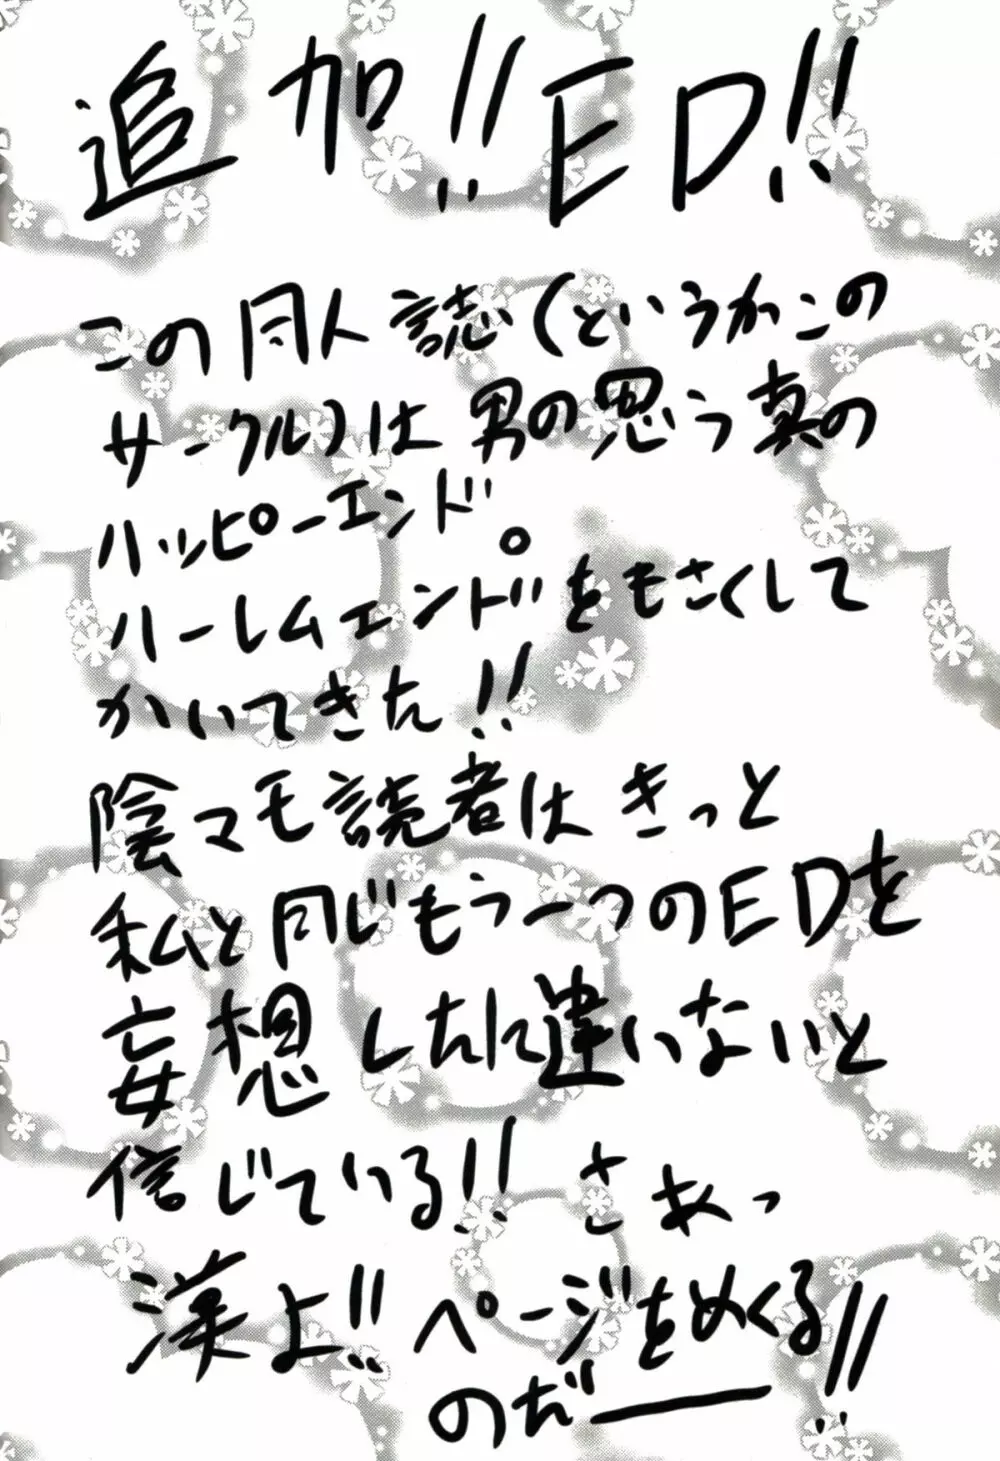 追加!!ED!!
この同人誌(というかこの
サークル)は男の思う真の
ハッピーエンド。
ハーレムエンドをもさくして
かいてきた!!
陰マモ読者はきっと
私と同じもう一つのEDを
妄想したに違いないと
信じている!! さあっ
漢よ!! ページをめくる
のだ――!!